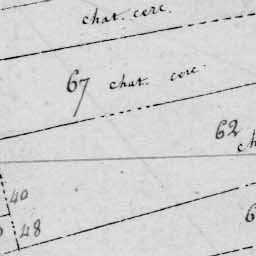 chat. cere.
67 chat. cere.
62
40
48